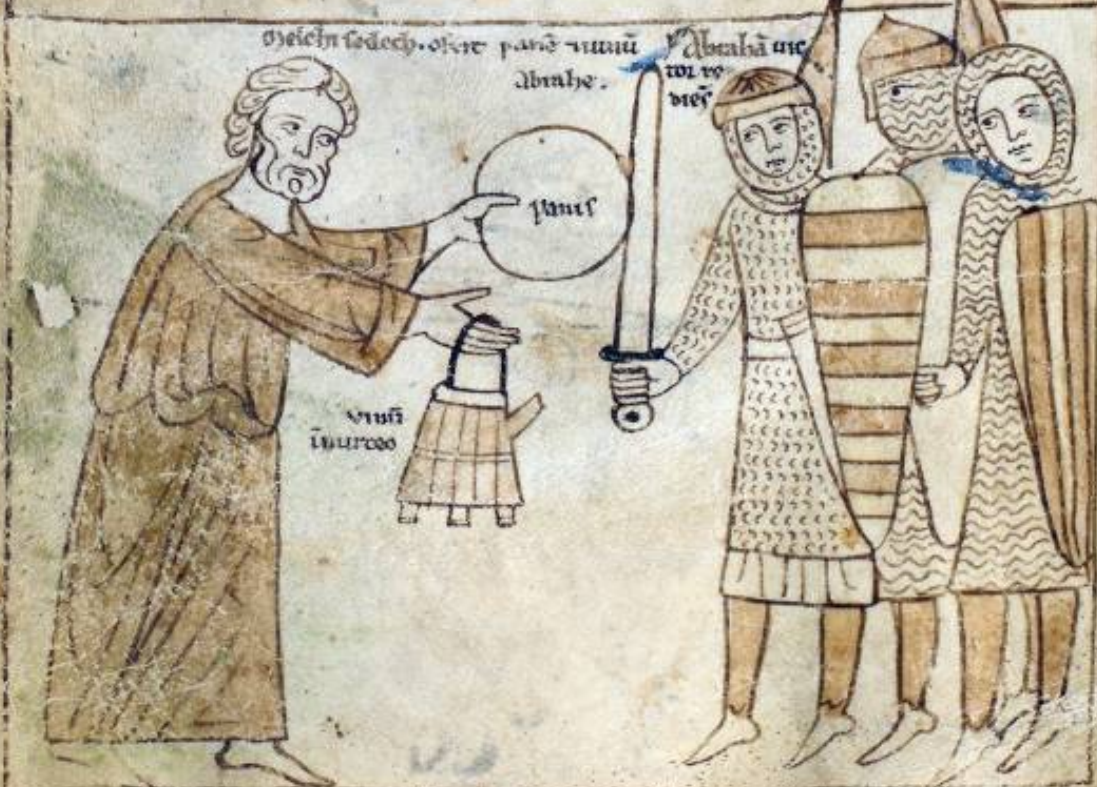 Melchisedech. offert panē ⁊ uinū
Abrahe.
Abrahā uic
tor re
diēs
panis
uinū
ī urceo